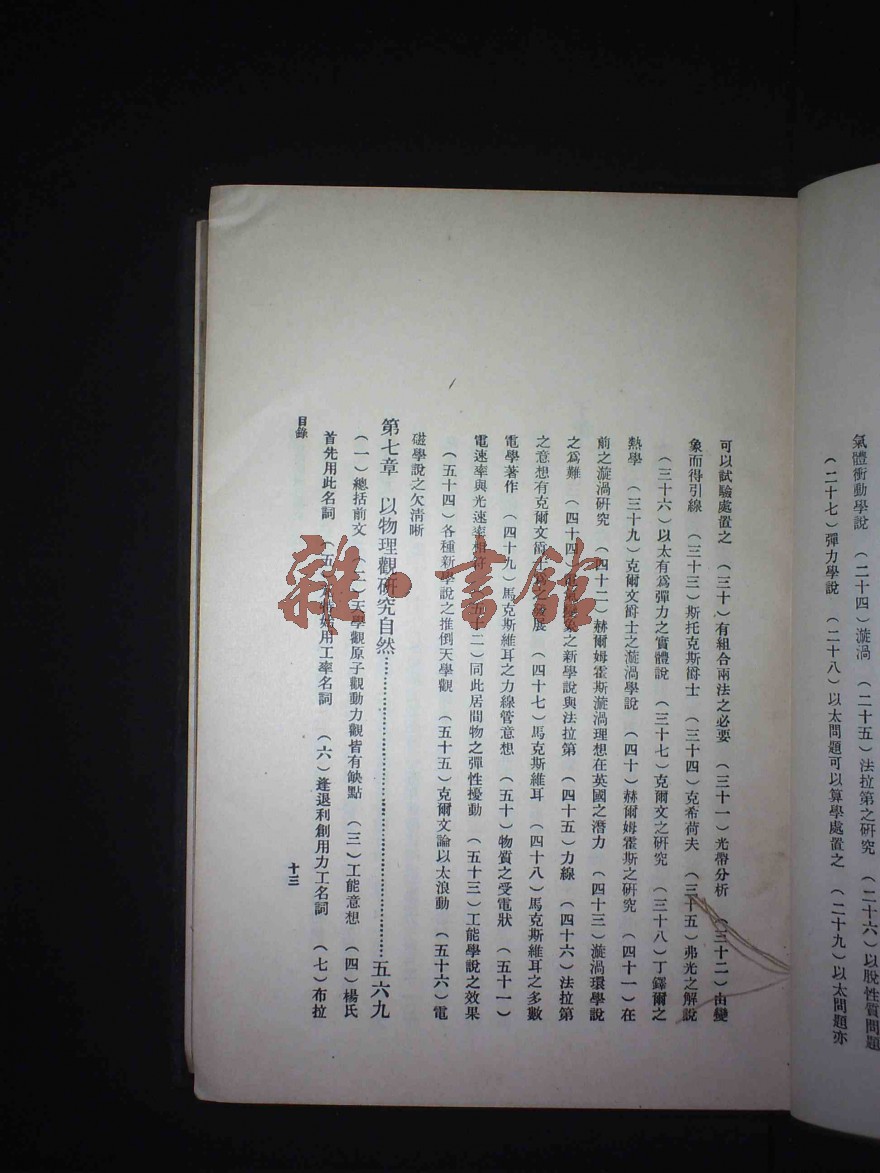 氣體衝動學說 （二十四）漩渦 （二十五）法拉第之硏究 （二十六）以脫性質問題
（二十七）彈力學說 （二十八）以太問題可以算學處置之 （二十九）以太問題亦
可以試驗處置之 （三十）有組合兩法之必要 （三十一）光帶分析 （三十二）由變
象而得引線 （三十三）斯托克斯爵士 （三十四）克希荷夫 （三十五）弗光之解說
（三十六）以太有爲彈力之實體說 （三十七）克爾文之硏究 （三十八）丁鐸爾之
熱學 （三十九）克爾文爵士之漩渦學說 （四十）赫爾姆霍斯之硏究 （四十一）在
前之漩渦硏究 （四十二）赫爾姆霍斯漩渦理想在英國之潛力 （四十三）漩渦環學說
之爲難 （四十四）之新學說與法拉第 （四十五）力線 （四十六）法拉第
之意想有克爾文爵士爲之發展 （四十七）馬克斯維耳 （四十八）馬克斯維耳之多數
電學著作 （四十九）馬克斯維耳之力線管意想 （五十）物質之受電狀 （五十一）
電速率與光速率相符 （五十二）同此居間物之彈性擾動 （五十三）工能學說之效果
（五十四）各種新學說之推倒天學觀 （五十五）克爾文論以太浪動 （五十六）電
磁學說之欠清晰
第七章 以物理觀硏究自然……………………五六九
（一）總括前文 （二）天學觀原子觀動力觀皆有缺點 （三）工能意想 （四）楊氏
首先用此名詞 （五）始用工率名詞 （六）逢退利創用力工名詞 （七）布拉
目錄
十三
雜·書館